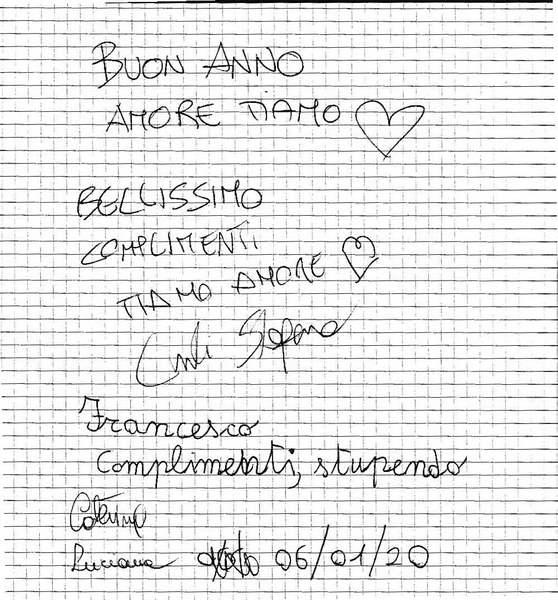 BUON ANNO
AMORE TIAMO
BELLISSIMO
COMPLIMENTI
TIAMO AMORE
Stefano
Francesco
Complimenti, stupendo
Luciana 06/01/20